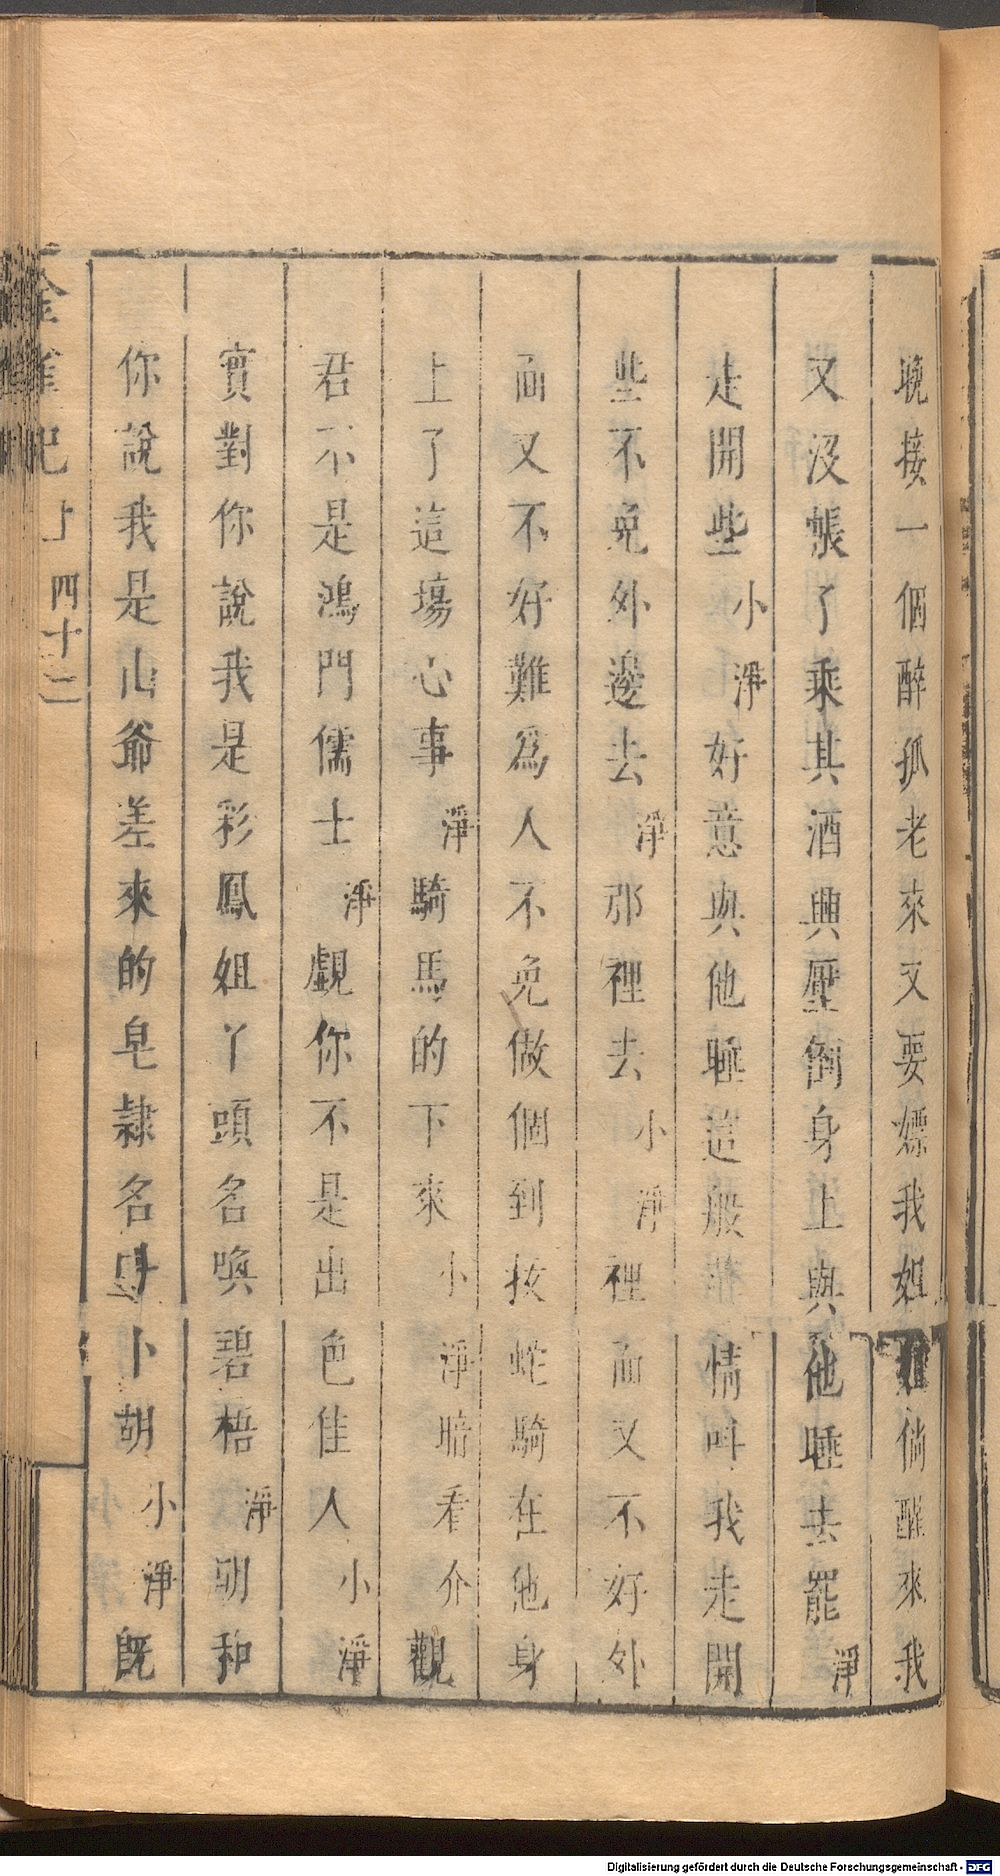 晚接一個醉孤老來又要嫖我姐姐倘醒來我
又沒帳了乘其酒興壓倒身上與他睡去罷淨
走開些小淨好意與他睡這般情叫我走開
些不免外邊去淨那裡去小淨裡面又不好外
面又不好難為人不免做個到扳蛇騎在他身
上了這塲心事淨騎馬的下來小淨暗看介觀
君不是鴻門儒士淨覷你不是出色佳人小淨
實對你說我是彩鳳姐丫頭名喚碧梧淨胡和
你說我是山爺差來的皂隷名卜胡小淨既
金雀記 上 四十二
Digitalisierung gefördert durch die Deutsche Forschungsgemeinschaft - DFG